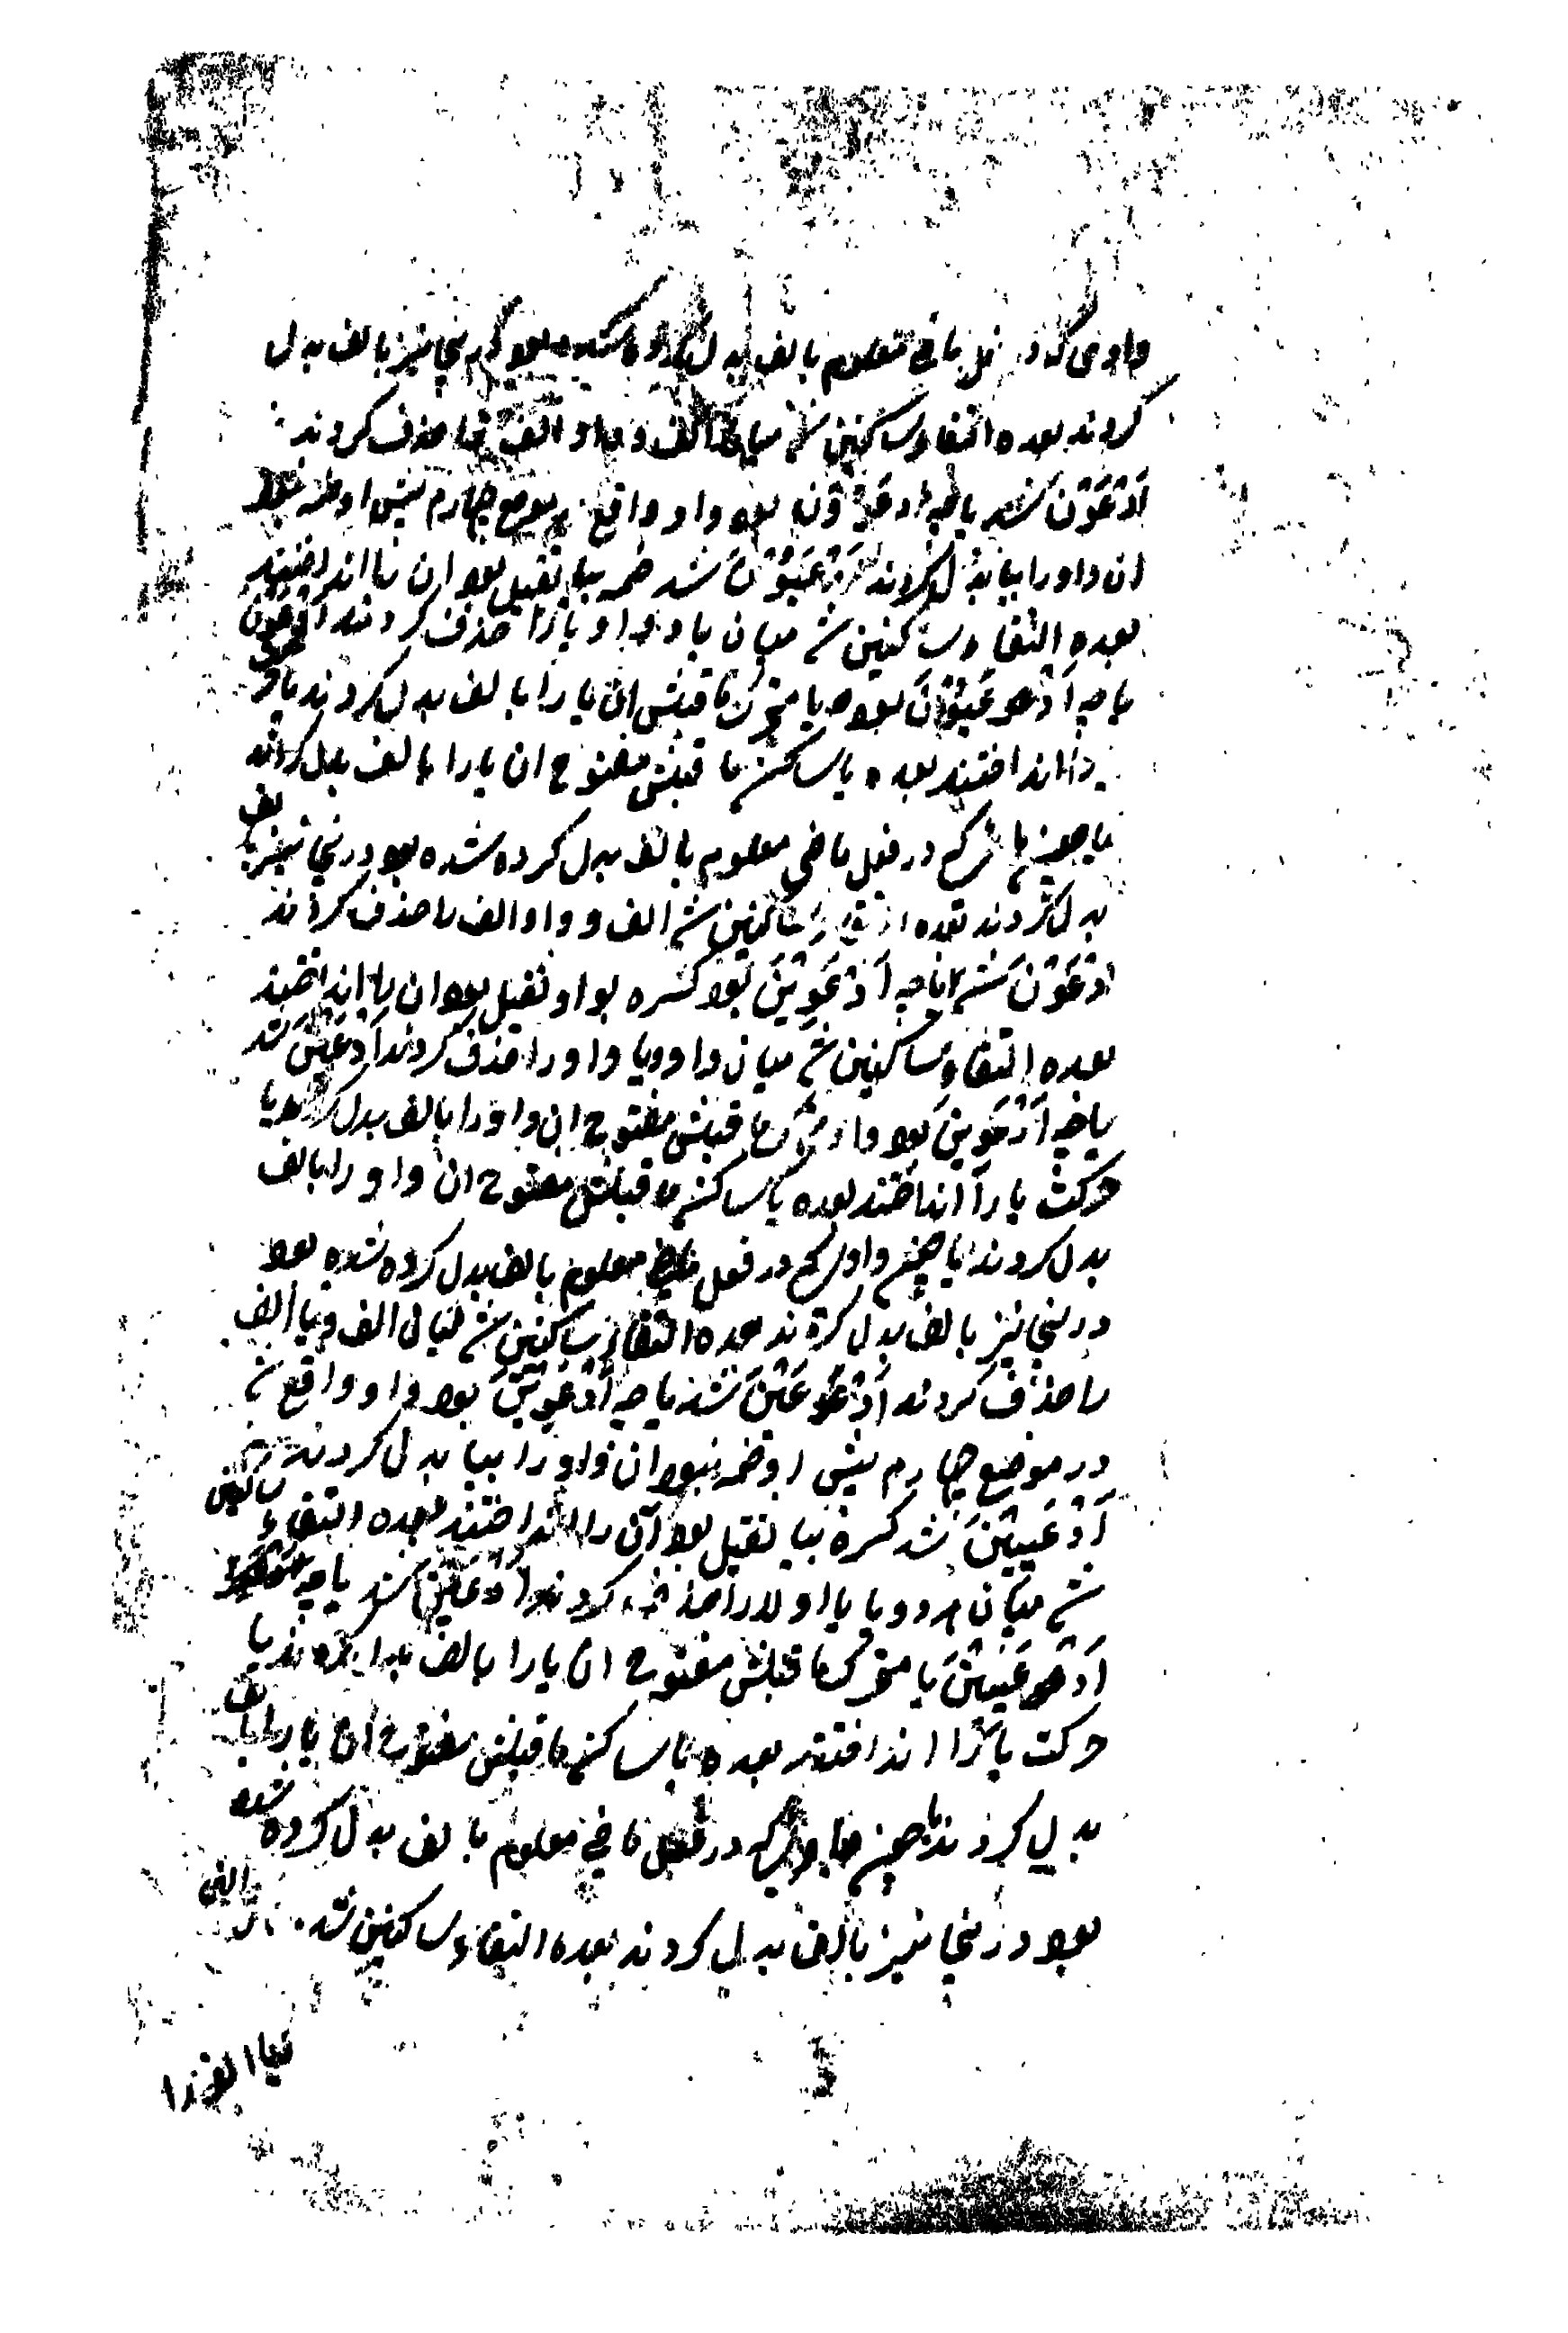 واوی که در فعل ماضی معلوم بالف بدل کرده شده بود درینجا نیز بالف بدل
کردند بعده التقاء ساکنین شد میان الف و واو الف را حذف کردند
اَدْعَوْنَ شد یا چه ادعوون بود واو واقع بموضع چهارم پیش او ضمه نبود
ان واورا بیا بدل کردند اَدْعَیُوْنَ شد ضمه بیا ثقیل بود ان را انداختند
بعده التقاء ساکنین شد میان یا و واو یا را حذف کردند اَدْعَوْنَ
یا چه اَدْعَیُوْنَ بود یا متحرک ماقبلش ان یا را بالف بدل کردند یا
را انداختند بعده یا ساکن ماقبلش مفتوح ان یا را بالف بدل کردند
یا چنانکه در فعل ماضی معلوم بالف بدل کرده شده بود درینجا نیز بالف
بدل کردند بعده التقاء ساکنین شد الف و واو الف را حذف کردند
ادْعَوْنَ شد یا چه اَدْعَوِیْنَ بود کسره بواو ثقیل بود ان را انداختند
بعده التقاء ساکنین شد میان واو ویا واو را حذف کردند اَدْعَیْنَ شد
یا چه اَدْعَوِیْنَ بود واو متحرک ماقبلش مفتوح ان واو را بالف بدل کردند یا
حرکت یا را انداختند بعده یا ساکن ماقبلش مفتوح ان واو را بالف
بدل کردند یا چنانکه در فعل ماضی معلوم بالف بدل کرده شده بود
درینجا نیز بالف بدل کردند بعده التقاء ساکنین شد میان الف ویا الف
را حذف کردند اَدْعَیْنَ شد یا چه اَدْعَوِیْنَ بود واو واقع شد
در موضع چهارم پیش او ضمه نبود ان واو را بیا بدل کردند
اَدْعَیِیْنَ شد کسره بیا ثقیل بود آن را انداختند بعده التقاء ساکنین
شد میان هر دو یا یا اولا را حذف کردند اَدْعَیْنَ شد یا چه
اَدْعَیِیْنَ یا متحرک ماقبلش مفتوح ان یا را بالف بدل کردند یا
حرکت یا را انداختند بعده یا ساکن ماقبلش مفتوح ان یا را بالف
بدل کردند یا چنانکه در فعل ماضی معلوم بالف بدل کرده شده
بود درینجا نیز بالف بدل کردند بعده التقاء ساکنین شد میان الف